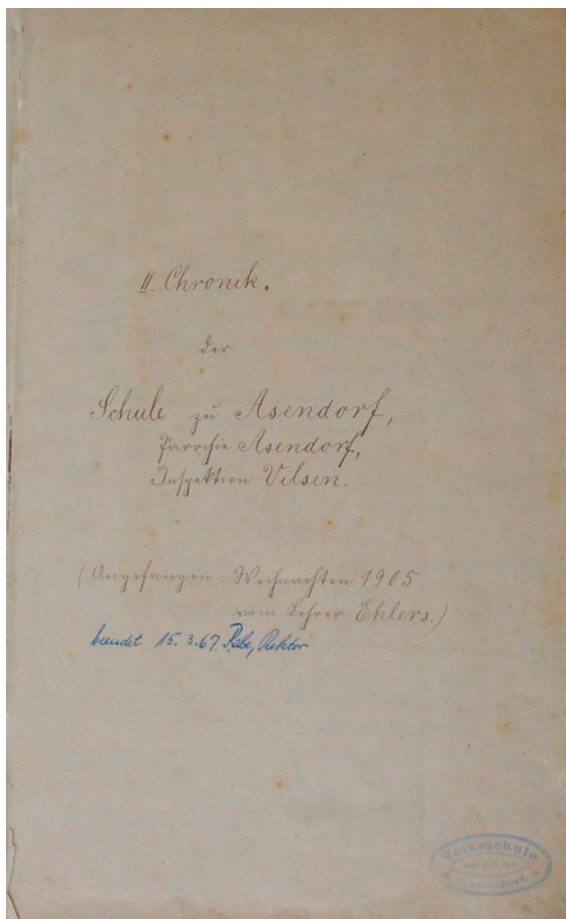 II. Chronik.
der
Schule zu Asendorf,
Parochie Asendorf,
Inspektion Vilsen.
(Angefangen: Weihnachten 1905
vom Lehrer Ehlers.)
beendet 15.3.67. Rabe, Rektor
Volksschule
Asendorf